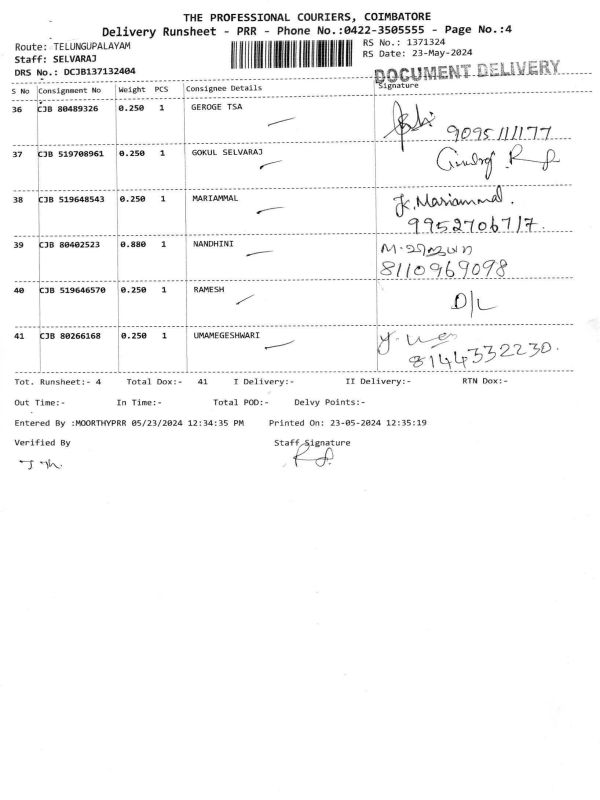 THE PROFESSIONAL COURIERS, COIMBATORE
Delivery Runsheet - PRR - Phone No.:0422-3505555 - Page No.:4
Route: TELUNGUPALAYAM RS No.: 1371324
Staff: SELVARAJ RS Date: 23-May-2024
DRS No.: DCJB137132404 DOCUMENT DELIVERY
S No Consignment No Weight PCS Consignee Details Signature
36 CJB 80489326 0.250 1 GEROGE TSA
9095111177
37 CJB 519708961 0.250 1 GOKUL SELVARAJ
38 CJB 519648543 0.250 1 MARIAMMAL K. Mariammal.
9952706717.
39 CJB 80402523 0.880 1 NANDHINI
8110969098
40 CJB 519646570 0.250 1 RAMESH D/L
41 CJB 80266168 0.250 1 UMAMEGESHWARI
8144332230.
Tot. Runsheet:- 4 Total Dox:- 41 I Delivery:- II Delivery:- RTN Dox:-
Out Time:- In Time:- Total POD:- Delvy Points:-
Entered By :MOORTHYPRR 05/23/2024 12:34:35 PM Printed On: 23-05-2024 12:35:19
Verified By Staff Signature